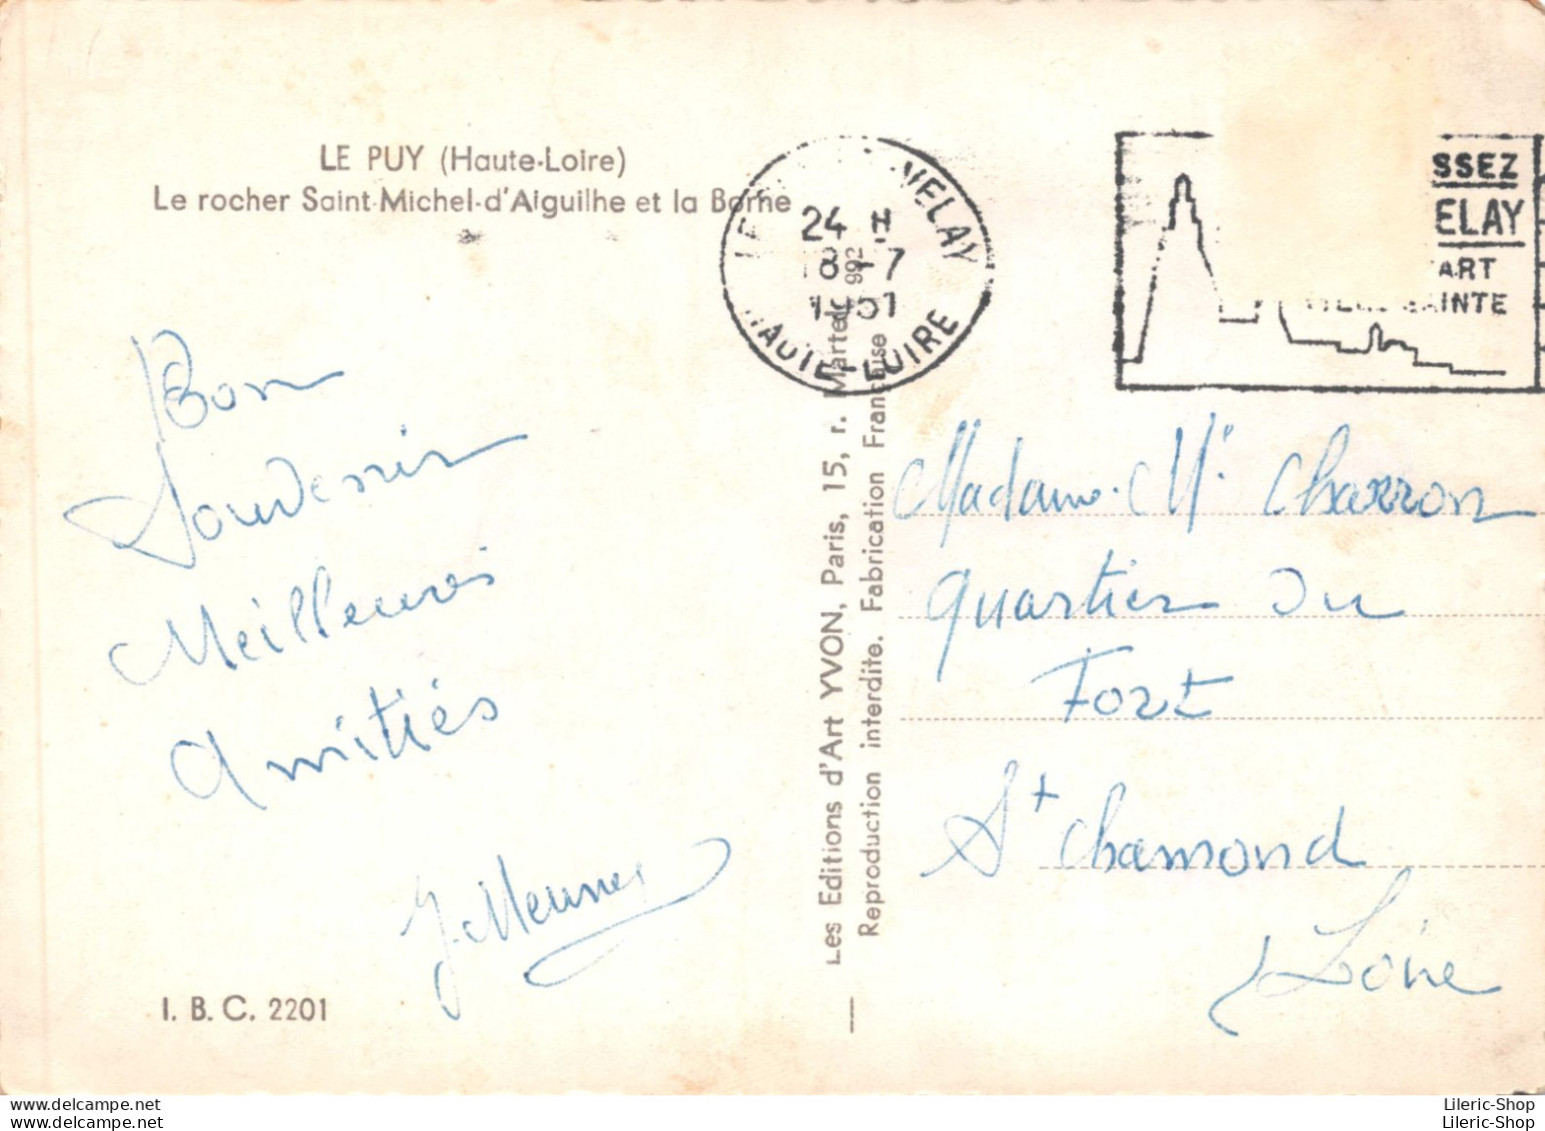 LE PUY (Haute-Loire)
Le rocher Saint-Michel-d'Aiguilhe et la Borne
VELAY
24 H
18-7
HAUTE-LOIRE
SSEZ
ELAY
ART
AINTE
Bon
Souvenir
Meilleures
Amitiés
I. B. C. 2201
Les Editions d'Art YVON, Paris, 15, r. Martel 992
Reproduction interdite. Fabrication Française
Madame Charron
quartier du
Fort
St chamond
Loire
Lileric-Shop
Lileric-Shop
www.delcampe.net
www.delcampe.net